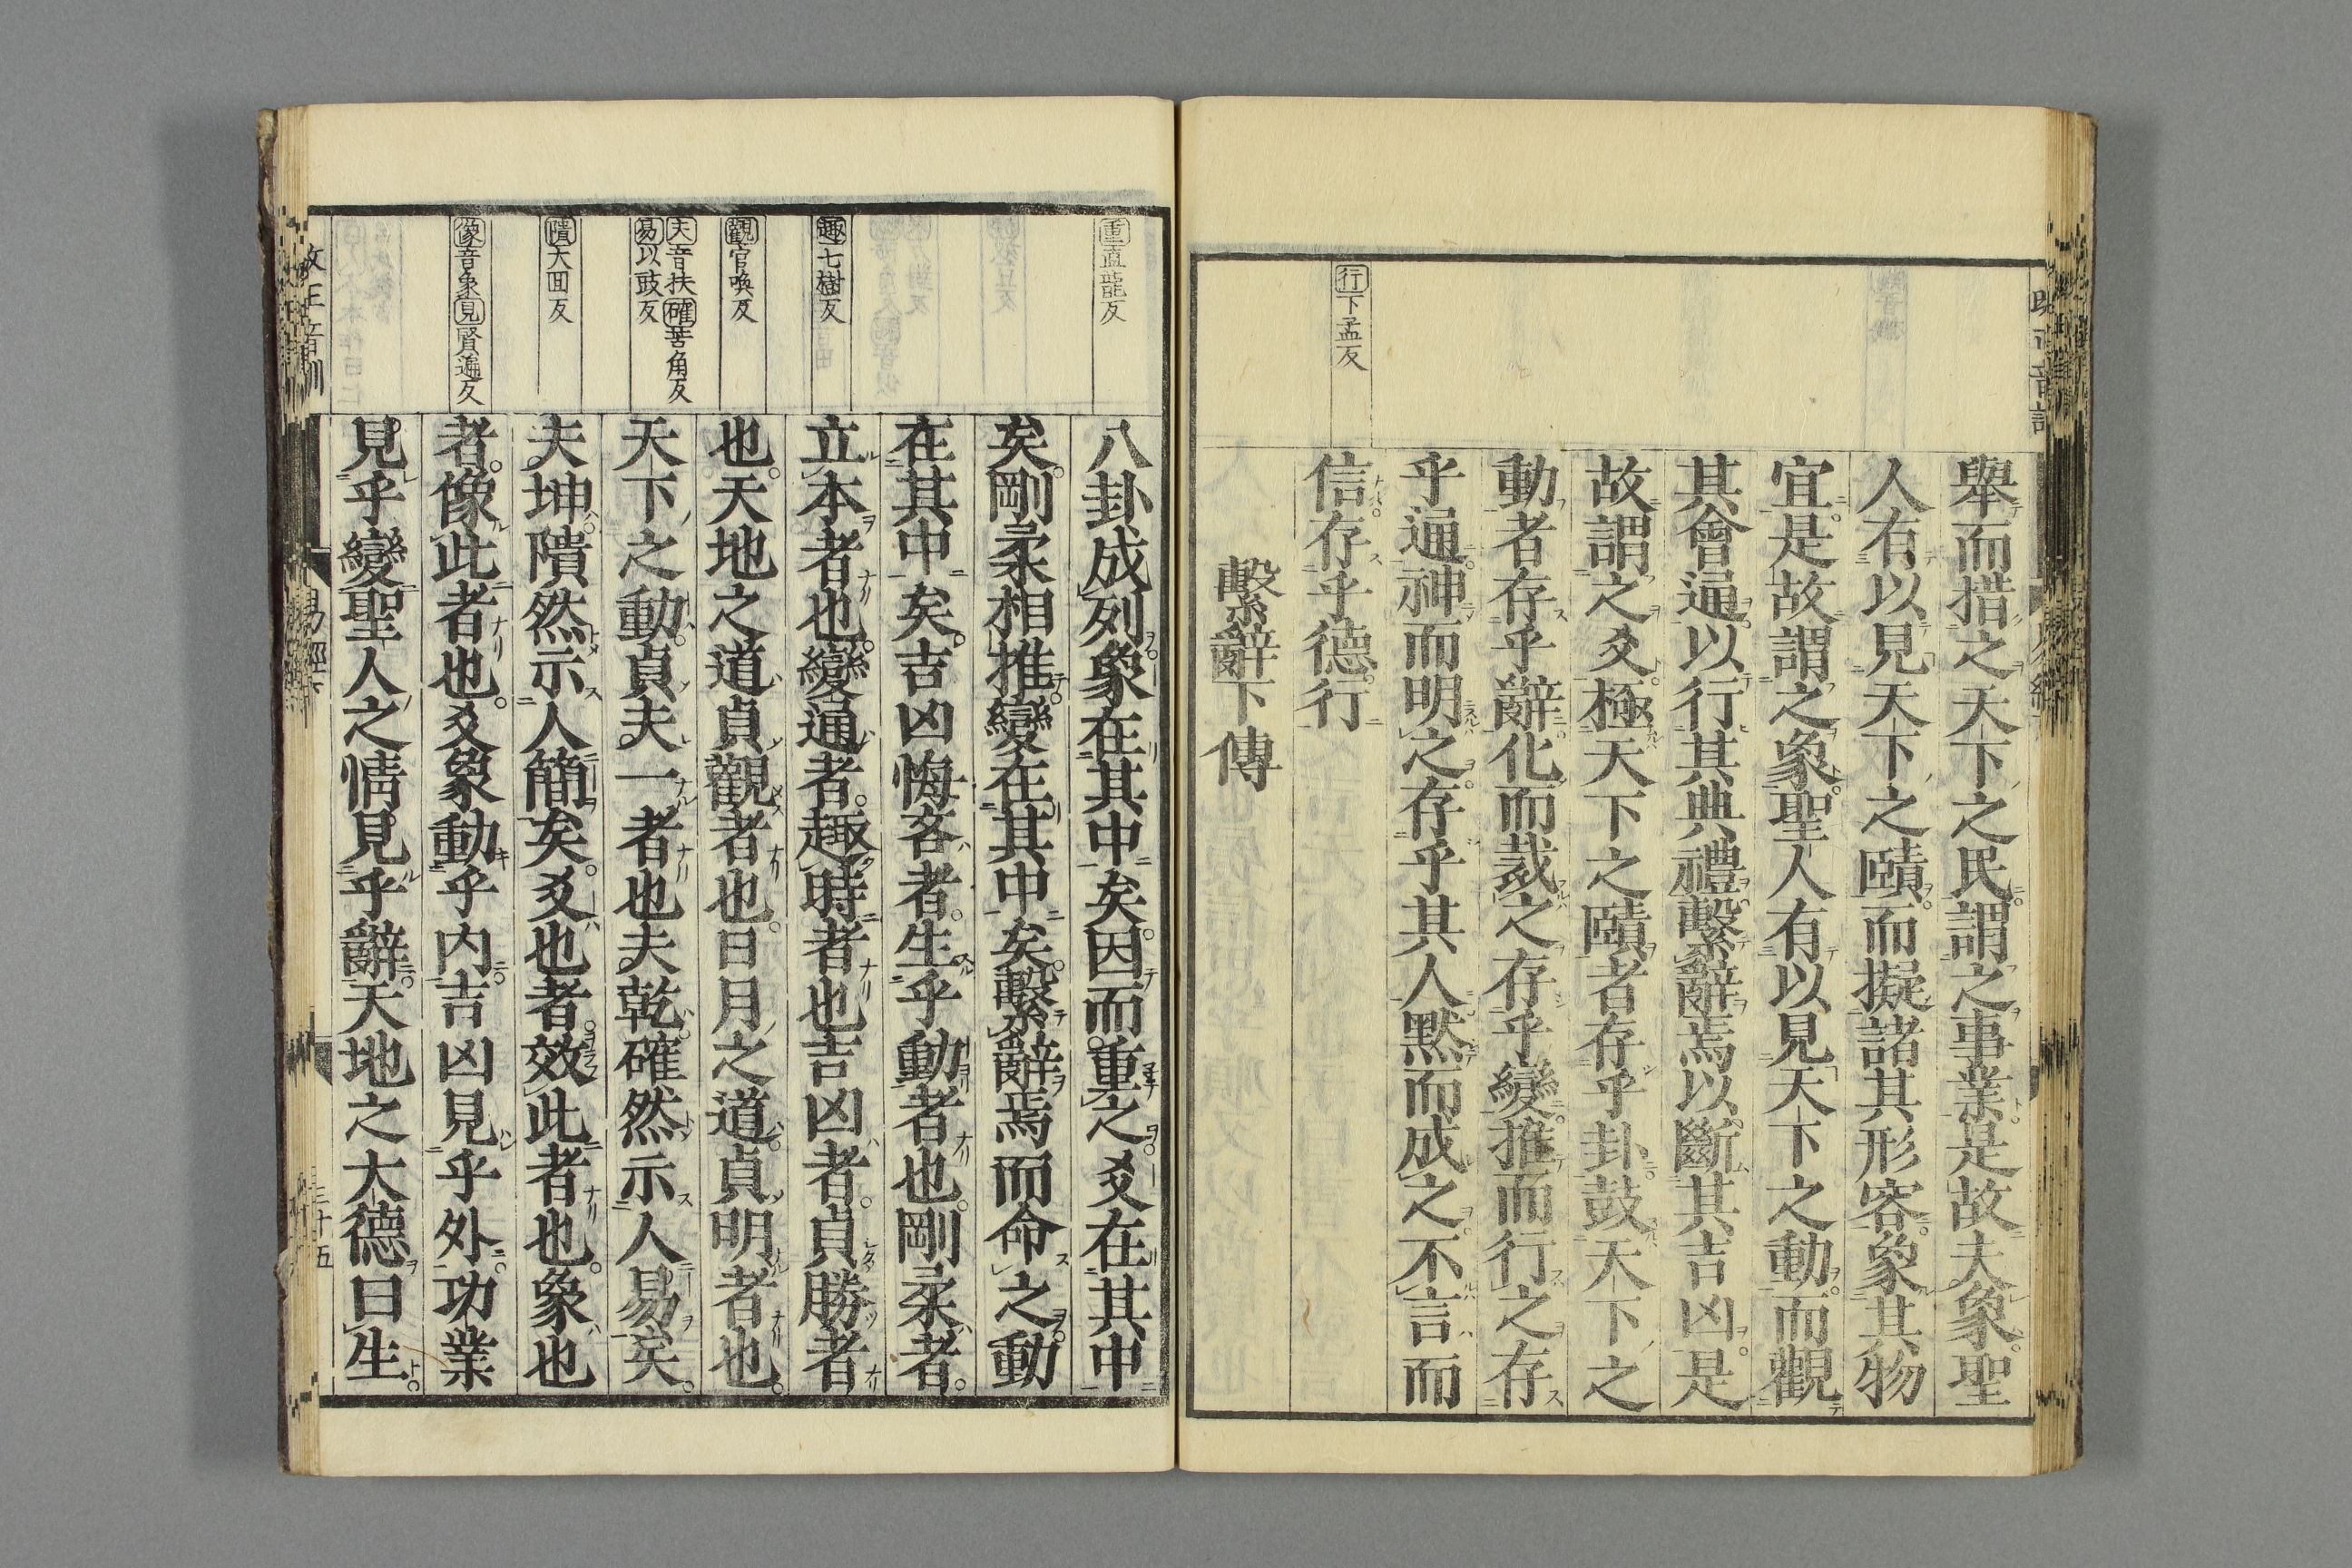 行下孟反
舉而措之天下之民謂之事業是故夫象聖
人有以見天下之賾而擬諸其形容象其物
宜是故謂之象聖人有以見天下之動而觀
其會通以行其典禮繫辭焉以斷其吉凶是
故謂之爻極天下之賾者存乎卦鼓天下之
動者存乎辭化而裁之存乎變推而行之存
乎通神而明之存乎其人黙而成之不言而
信存乎德行
繫辭下傳
重直龍反
趣七樹反
觀官喚反
夫音扶確苦角反
易以豉反
隤大回反
像音象見賢遍反
八卦成列象在其中矣因而重之爻在其中
矣剛柔相推變在其中矣繫辭焉而命之動
在其中矣吉凶悔吝者生乎動者也剛柔者
立本者也變通者趣時者也吉凶者貞勝者
也天地之道貞觀者也日月之道貞明者也
天下之動貞夫一者也夫乾確然示人易矣
夫坤隤然示人簡矣爻也者效此者也象也
者像此者也爻象動乎内吉凶見乎外功業
見乎變聖人之情見乎辭天地之大德曰生
易經
三十五